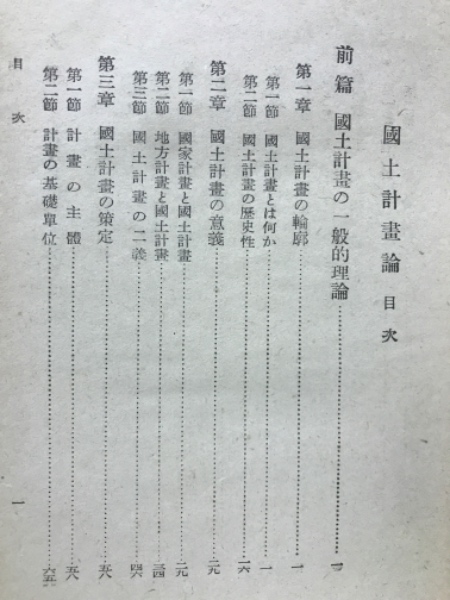 國土計畫論 目次
前篇 國土計畫の一般的理論
第一章 國土計畫の輪廓 一
第一節 國土計畫とは何か 一
第二節 國土計畫の歷史性 一六
第二章 國土計畫の意義 二九
第一節 國家計畫と國土計畫 二九
第二節 地方計畫と國土計畫 三四
第三節 國土計畫の二義 四六
第三章 國土計畫の策定 五八
第一節 計畫の主體 五八
第二節 計畫の基礎單位 六五
目次 一